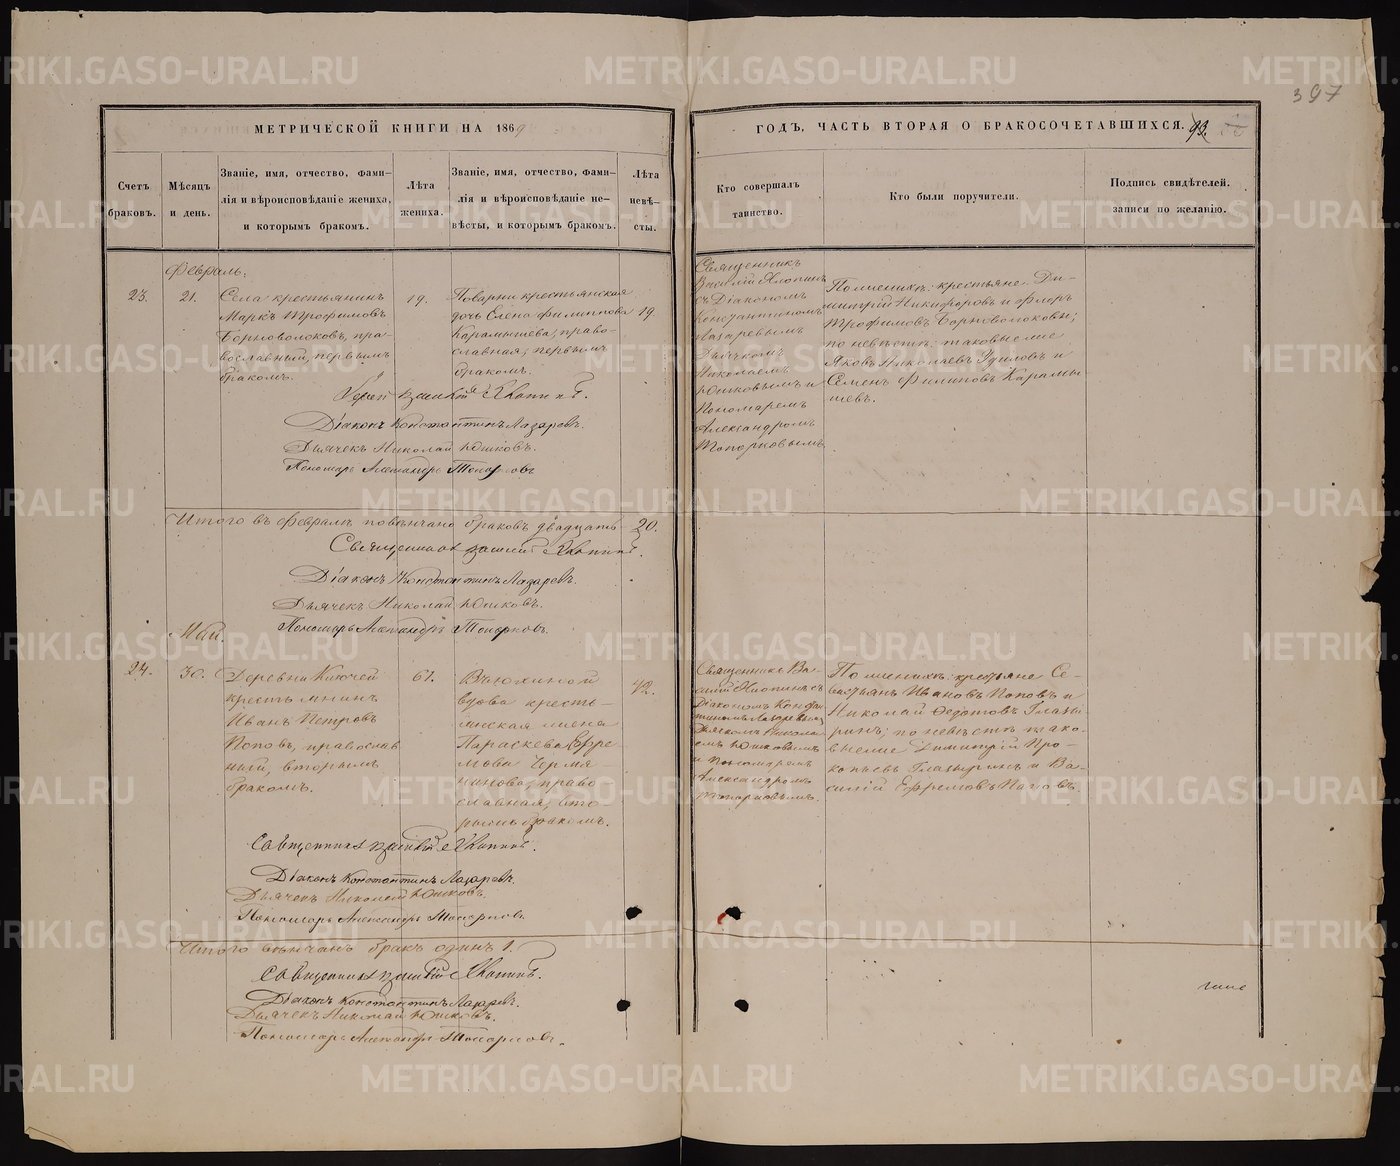 397
МЕТРИЧЕСКОЙ КНИГИ НА 1869
ГОДЪ, ЧАСТЬ ВТОРАЯ О БРАКОСОЧЕТАВШИХСЯ. 93.
Счетъ
браковъ.
Мѣсяцъ
и день.
Званіе, имя, отчество, фами-
лія и вѣроисповѣданіе жениха,
и которымъ бракомъ.
Лѣта
жениха.
Званіе, имя, отчество, фами-
лія и вѣроисповѣданіе не-
вѣсты, и которымъ бракомъ.
Лѣта
невѣ-
сты.
Кто совершалъ
таинство.
Кто были поручители.
Подпись свидѣтелей.
записи по желанію.
Февраль.
23.
21.
Села крестьянинъ
Маркъ Трофимовъ
Борноволоковъ, пра-
вославный, первымъ
бракомъ.
19.
крестьянская
дочь Елена Филиппова
Карамышева, право-
славная, первымъ
бракомъ.
19.
Священникъ
Василій Хлопинъ
съ Діакономъ
Константиномъ
Лазаревымъ
Дьячкомъ
Николаемъ
Юшковымъ и
Пономаремъ
Александромъ
Топорковымъ
По женихѣ: крестьяне Ди-
митрій Никифоровъ и Флоръ
Трофимовъ Борноволоковы;
по невѣстѣ: таковые же
Яковъ Николаевъ и
Семенъ Филиповъ Карамы
шевъ.
Іерей Василій Хлопинъ.
Діаконъ Константинъ Лазаревъ.
Дьячекъ Николай Юшковъ.
Пономарь Александръ Топорковъ
Итого въ февралѣ повѣнчано браковъ двадцать 20.
Священникъ Василій Хлопинъ.
Діаконъ Константинъ Лазаревъ.
Дьячекъ Николай Юшковъ.
Пономарь Александръ Топорковъ.
Май.
24.
30.
Деревни Ключей
крестьянинъ
Иванъ Петровъ
Поповъ, православ
ный, вторымъ
бракомъ.
61.
вдова кресть-
янская жена
Параскева Ефре
мова
право
славная, вто-
рымъ бракомъ.
42.
Священникъ Ва-
силій Хлопинъ съ
Діакономъ Констан
тиномъ Лазаревымъ
Дьячкомъ Никола
емъ Юшковымъ
и Пономаремъ
Александромъ
Топорковымъ.
По женихѣ: крестьяне Се-
вастьянъ Ивановъ Поповъ и
Николай Федотовъ Глазы
ринъ; по невѣстѣ: тако-
вые же Димитрій Про-
копьевъ Глазыринъ и Ва-
силій Ефремовъ Поповъ.
Священникъ Василій Хлопинъ.
Діаконъ Константинъ Лазаревъ.
Дьячекъ Николай Юшковъ.
Пономарь Александръ Топорковъ
Итого вѣнчанъ бракъ одинъ 1.
Священникъ Василій Хлопинъ.
Діаконъ Константинъ Лазаревъ.
Дьячекъ Николай Юшковъ.
Пономарь Александръ Топорковъ.
METRIKI.GASO-URAL.RU